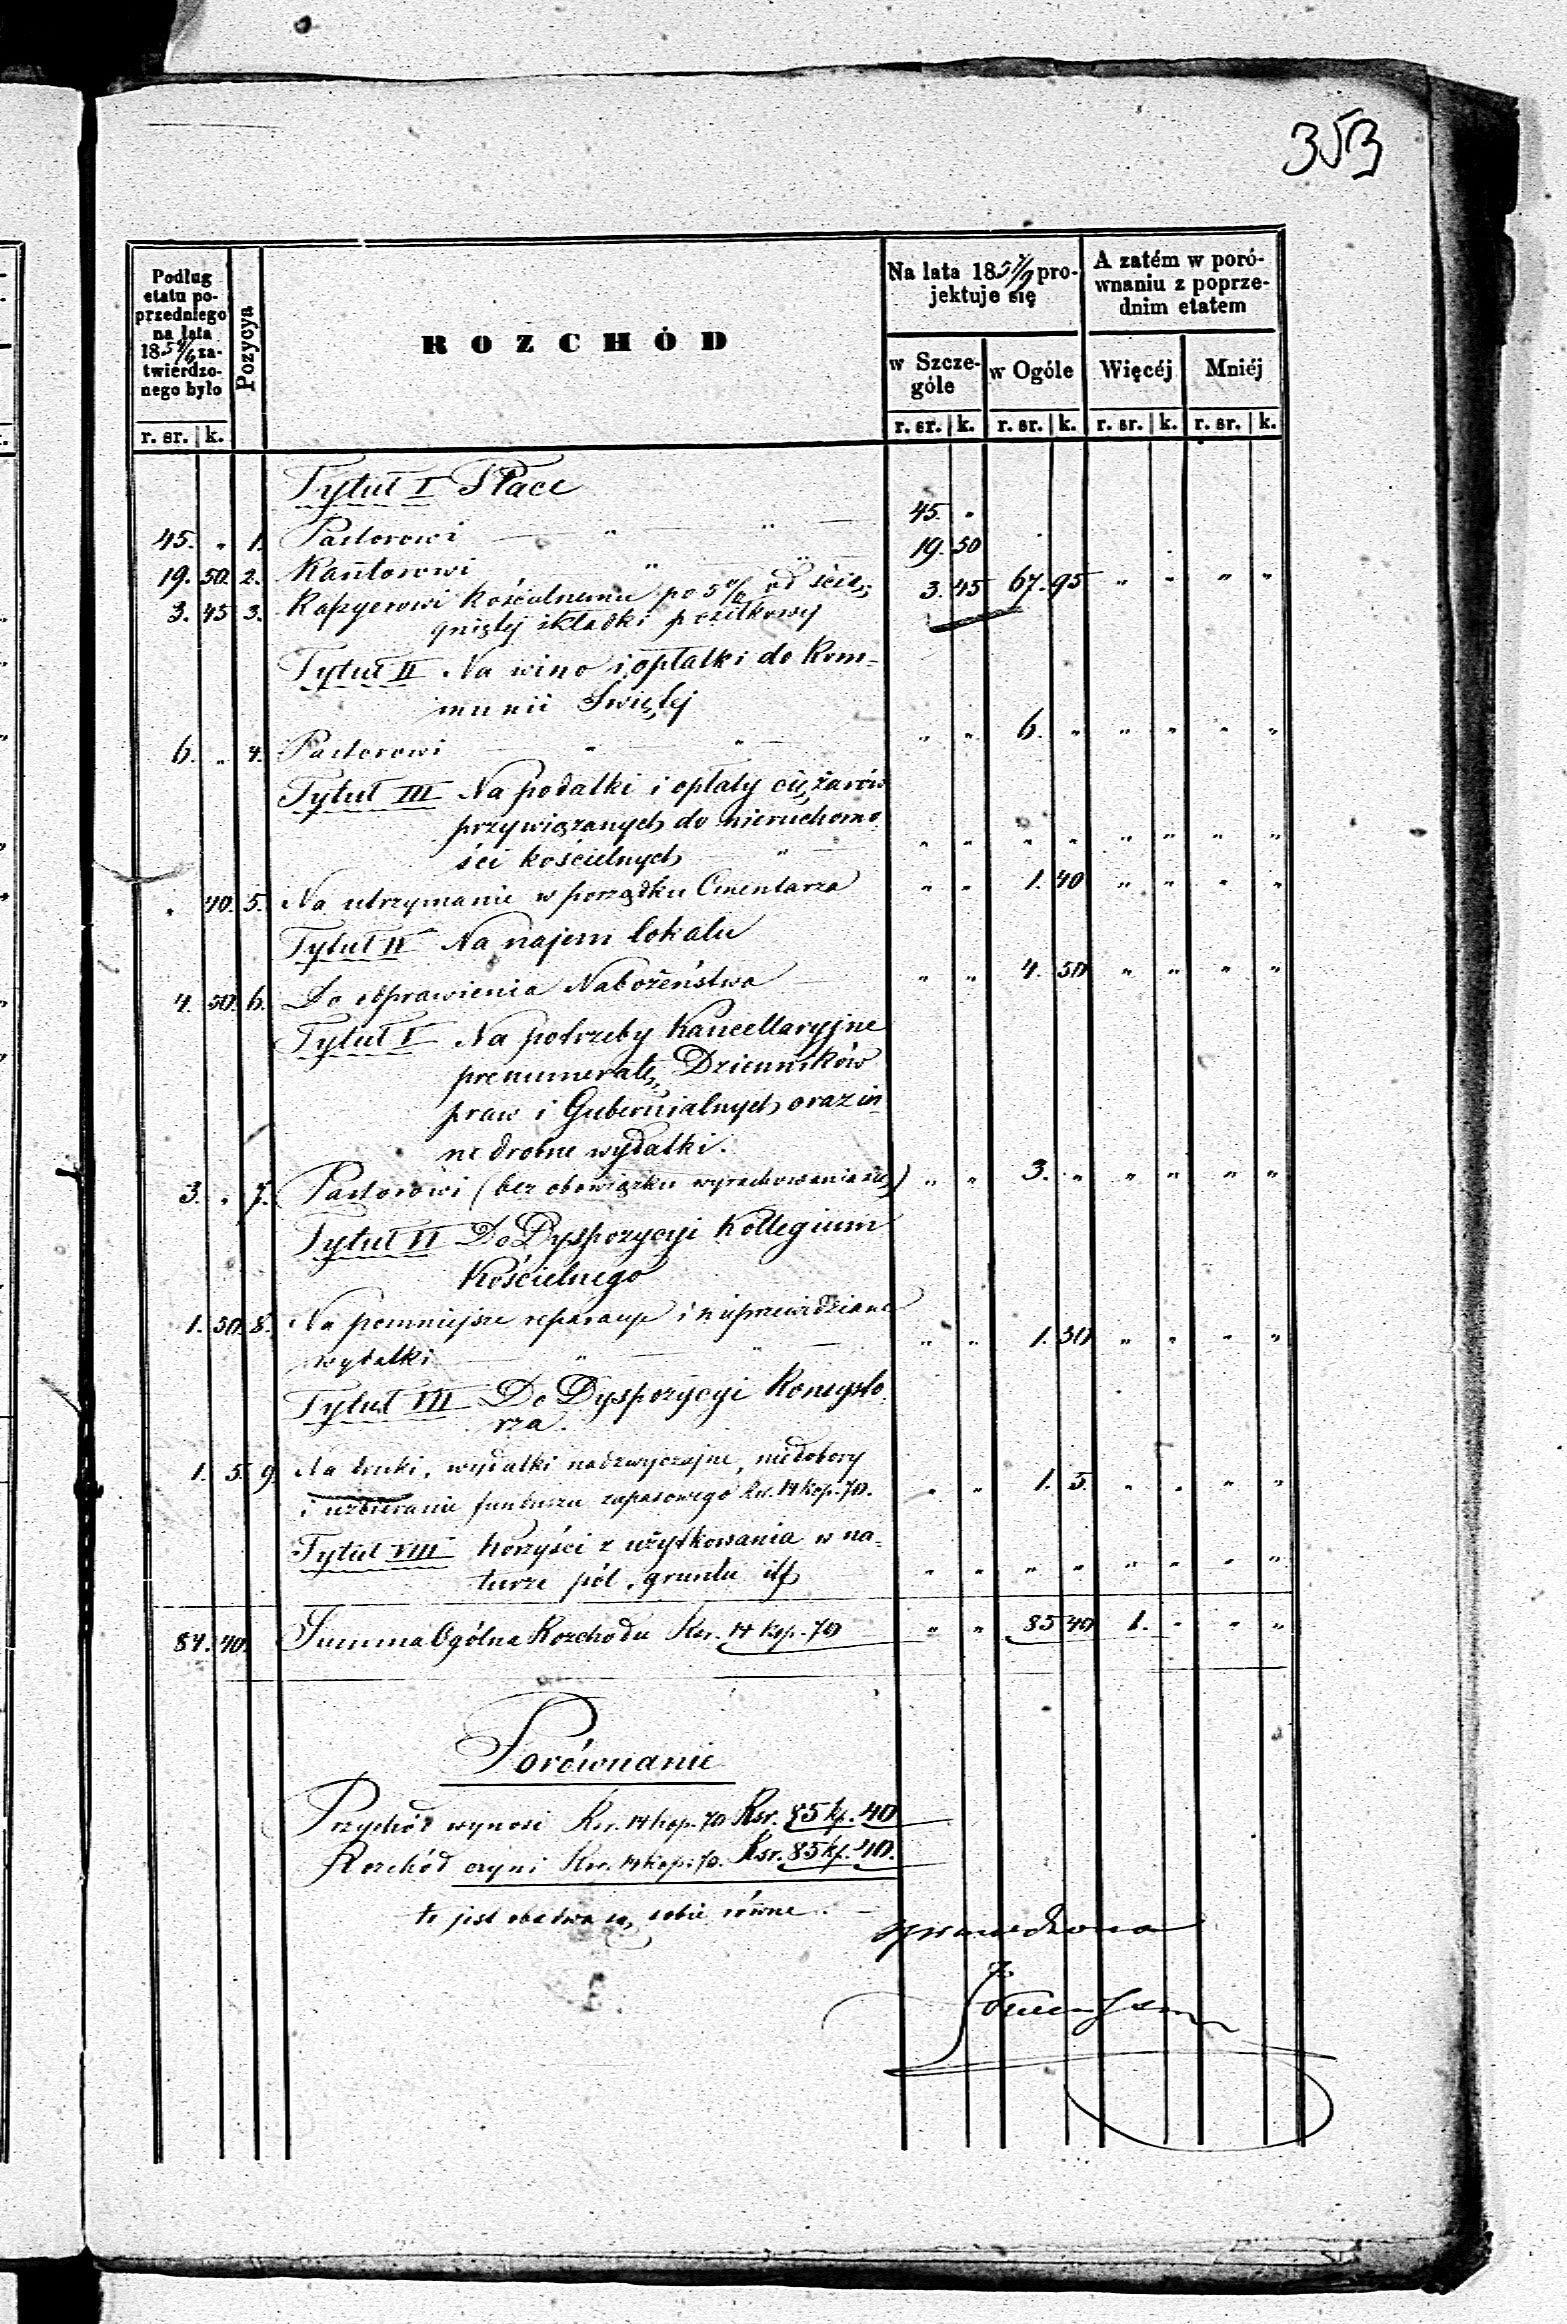 353
Podług etatu poprzedniego na lata 185 4/6 zatwierdzonego było
Pozycya
ROZCHÓD
Na lata 185 7/9 projektuje się
A zatém w porównaniu z poprzednim etatem
w Szczególe
w Ogóle
Więcéj
Mniéj
r. sr. | k. r. sr. | k. r. sr. | k. r. sr. | k. r. sr. | k.
Tytuł I Płace
45. " 1. Pastorowi " " 45. "
19. 50. 2. Kantorowi " " 19. 50
3. 45 3. Kassyerowi kościelnemu po 5 % od ścią- 3. 45 67. 95 " " " "
gniętéj składki pożitkowéj
Tytuł II Na wino i opłatki do Kom-
munii Świętéj
6. " 4. Pastorowi " " " " 6. " " " " "
Tytuł III Na podatki i opłaty ciężarów
przywiązanych do nieruchomo-
ści kościelnych " " " " " " " " "
" 40. 5. Na utrzymanie w porządku Cmentarza " " 1. 40 " " " "
Tytuł IV Na najem lokalu
4. 50. 6. Do odprawienia Nabożeństwa " " 4. 50 " " " "
Tytuł V Na potrzeby Kancellaryjne
prenumeratę Dzienników
praw i Gubernialnych oraz in-
ne drobne wydatki.
3. " 7. Pastorowi (bez obowiązku wyrachowania się) " " 3. " " " " "
Tytuł VI Do Dyspozycyi Kollegium
Kościelnego
1. 50. 8. Na pomniejsze reparacye i nieprzewidziane
wydatki " " " " 1. 50 " " " "
Tytuł VII Do Dyspozycyi Konsysto-
rza.
1. 5. 9 Na druki, wydatki nadzwyczajne, niedobory
i uzbieranie funduszu zapasowego Rsr. 14 kop. 70. " " 1. 5. " " " "
Tytuł VIII Korzyści z użytkowania w na-
turze pól, gruntu itp " " " " " " " "
84. 40. Summa Ogólna Rozchodu Rsr. 14 kop. 70 " " 85 40 1. " " "
Porównanie
Przychód wynosi Rsr. 14 kop. 70 Rsr. 85 kp. 40
Rozchód czyni Rsr. 14 kop. 70. Rsr. 85 kp. 40.
to jest obadwa są sobie równe.
sprawdzono